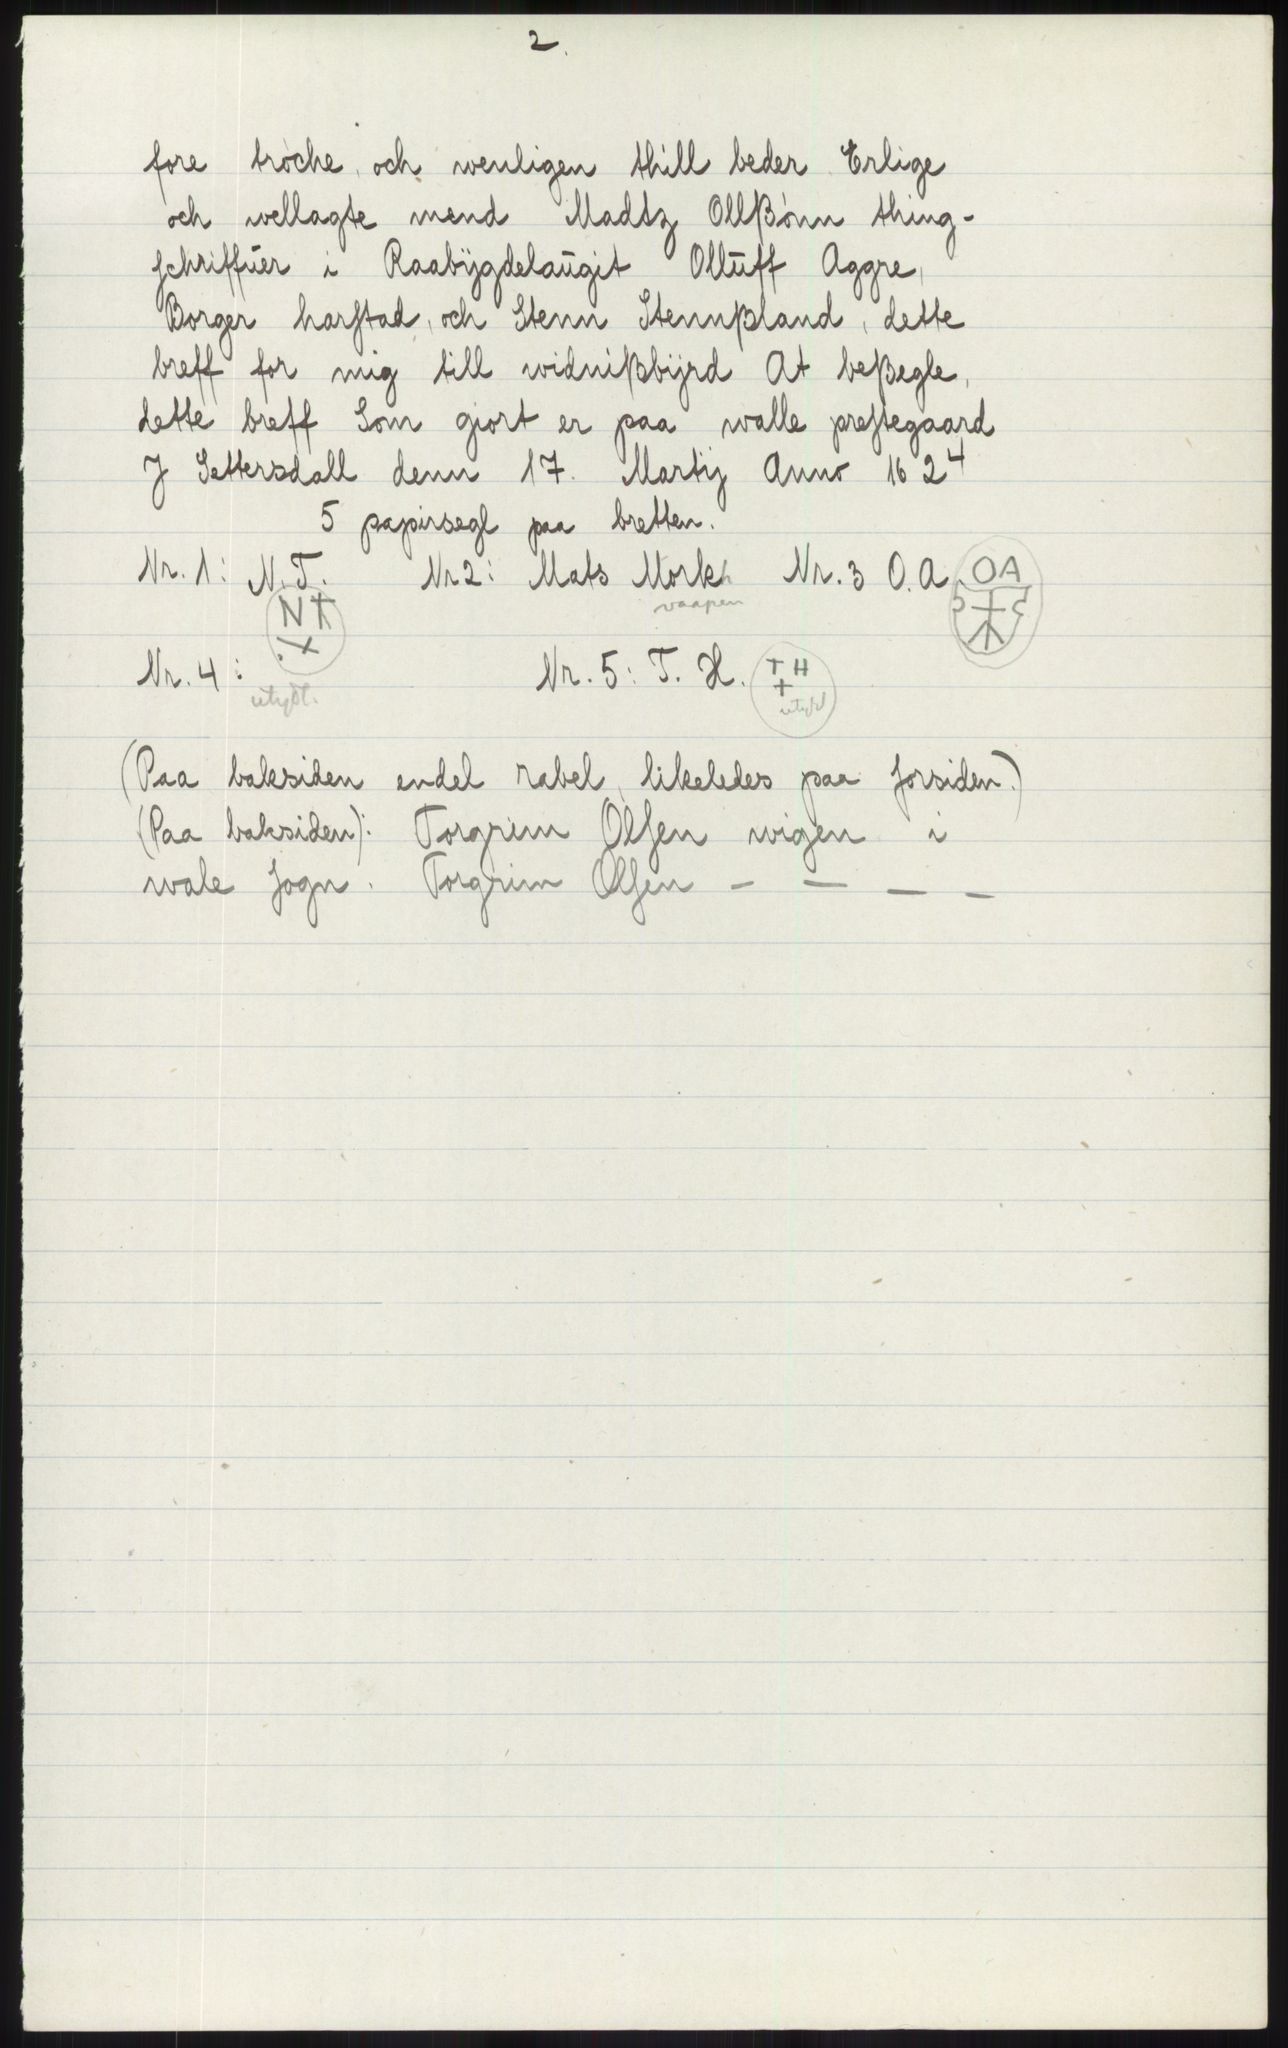 2.
fore trøche, och wenligen thill beder Erlige
och wellagte mend Madtz Ollßønn thing-
schriffuer i Raabÿgdelaugit Olluff Aggre,
Borger harstad, och Stenn Stennßland, dette
breff for mig till widnißbÿrd At beßegle,
dette breff Som giort er paa walle prestegaard
J Settersdall denn 17. Martij Anno 1624
5 papirsegl paa bretten.
Nr. 1: N. T. Nr 2: Mats Mørk Nr. 3 O. A. OA
N T vaapen
Nr. 4: utydl. Nr. 5: T. H. T H utydl
(Paa baksiden endel rabel, likeledes paa forsiden.)
(Paa baksiden): Torgrim Olsen wigen i
wale sogn. Torgrim Olsen - - - -